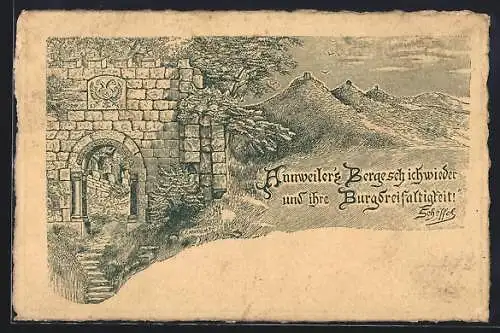 Annweiler's Berge seh ich wieder
und ihre Burgdreifaltigkeit!
Scheffel